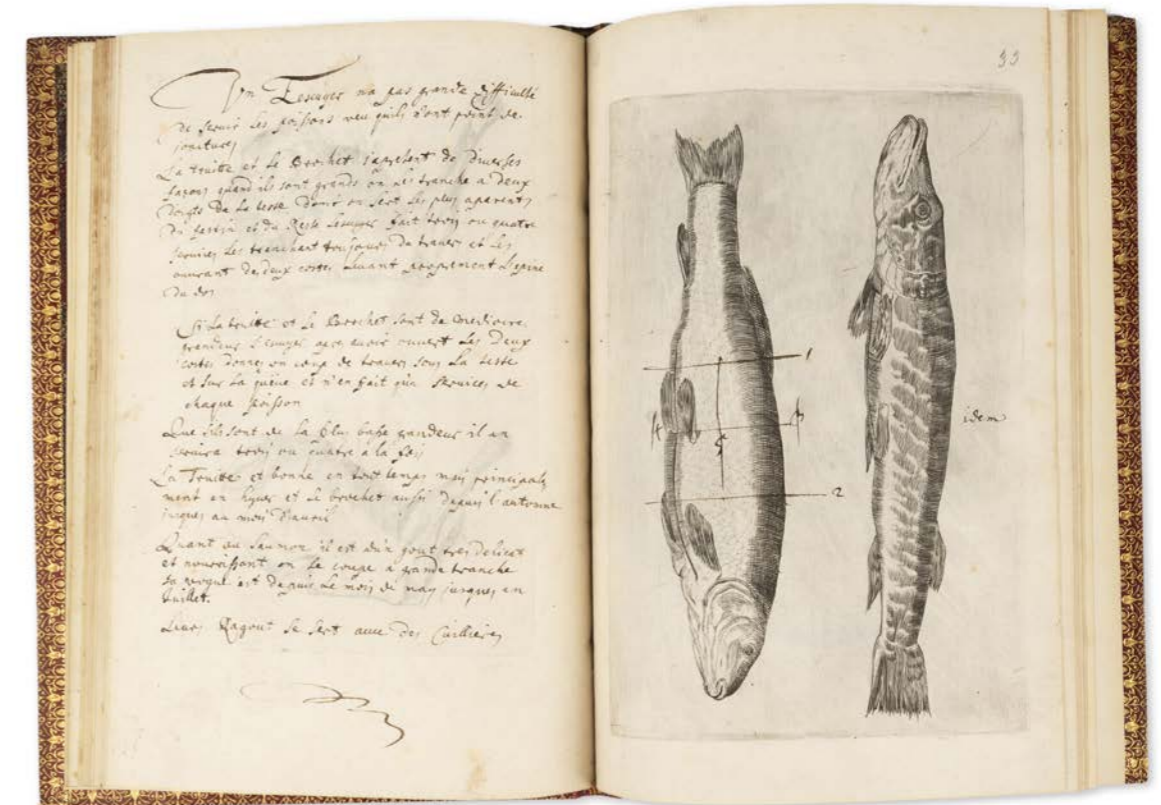 Un Escuyer na pas grande difficulté
de servir les poissons veu quils n'ont point de
jointures
La truite et le Brochet saprestent de diverses
façons quand ils sont grands on les tranche a deux
doigts de la teste dont on sert les plus aparents
du festin et du Reste lescuyer fait trois ou quatre
services les tranchant toujours de travers et les
ouvrant de deux costes levant proprement l'epine
du dos
Si la truitte et le Brochet sont de mediocre
grandeur l'escuyer apres avoir ouvert les deux
costes donne un coup de travers sous la teste
et sur la queue et n'en fait que services de
chaque poisson
Que sils sont de la plus basse grandeur il en
servira trois ou quatre a la fois
La Truite est bonne en tout temps mais principale
ment en hyver et le brochet aussi depuis l'automne
jusques au mois d'avril
Quant au Saumon il est d'un gout tres delicat
et nourrissant on le coupe a grande tranche
sa vogue est depuis le mois de may jusques en
Juillet.
Leurs Ragout se sert avec des Cuillieres
33
1
4
3
5
2
idem